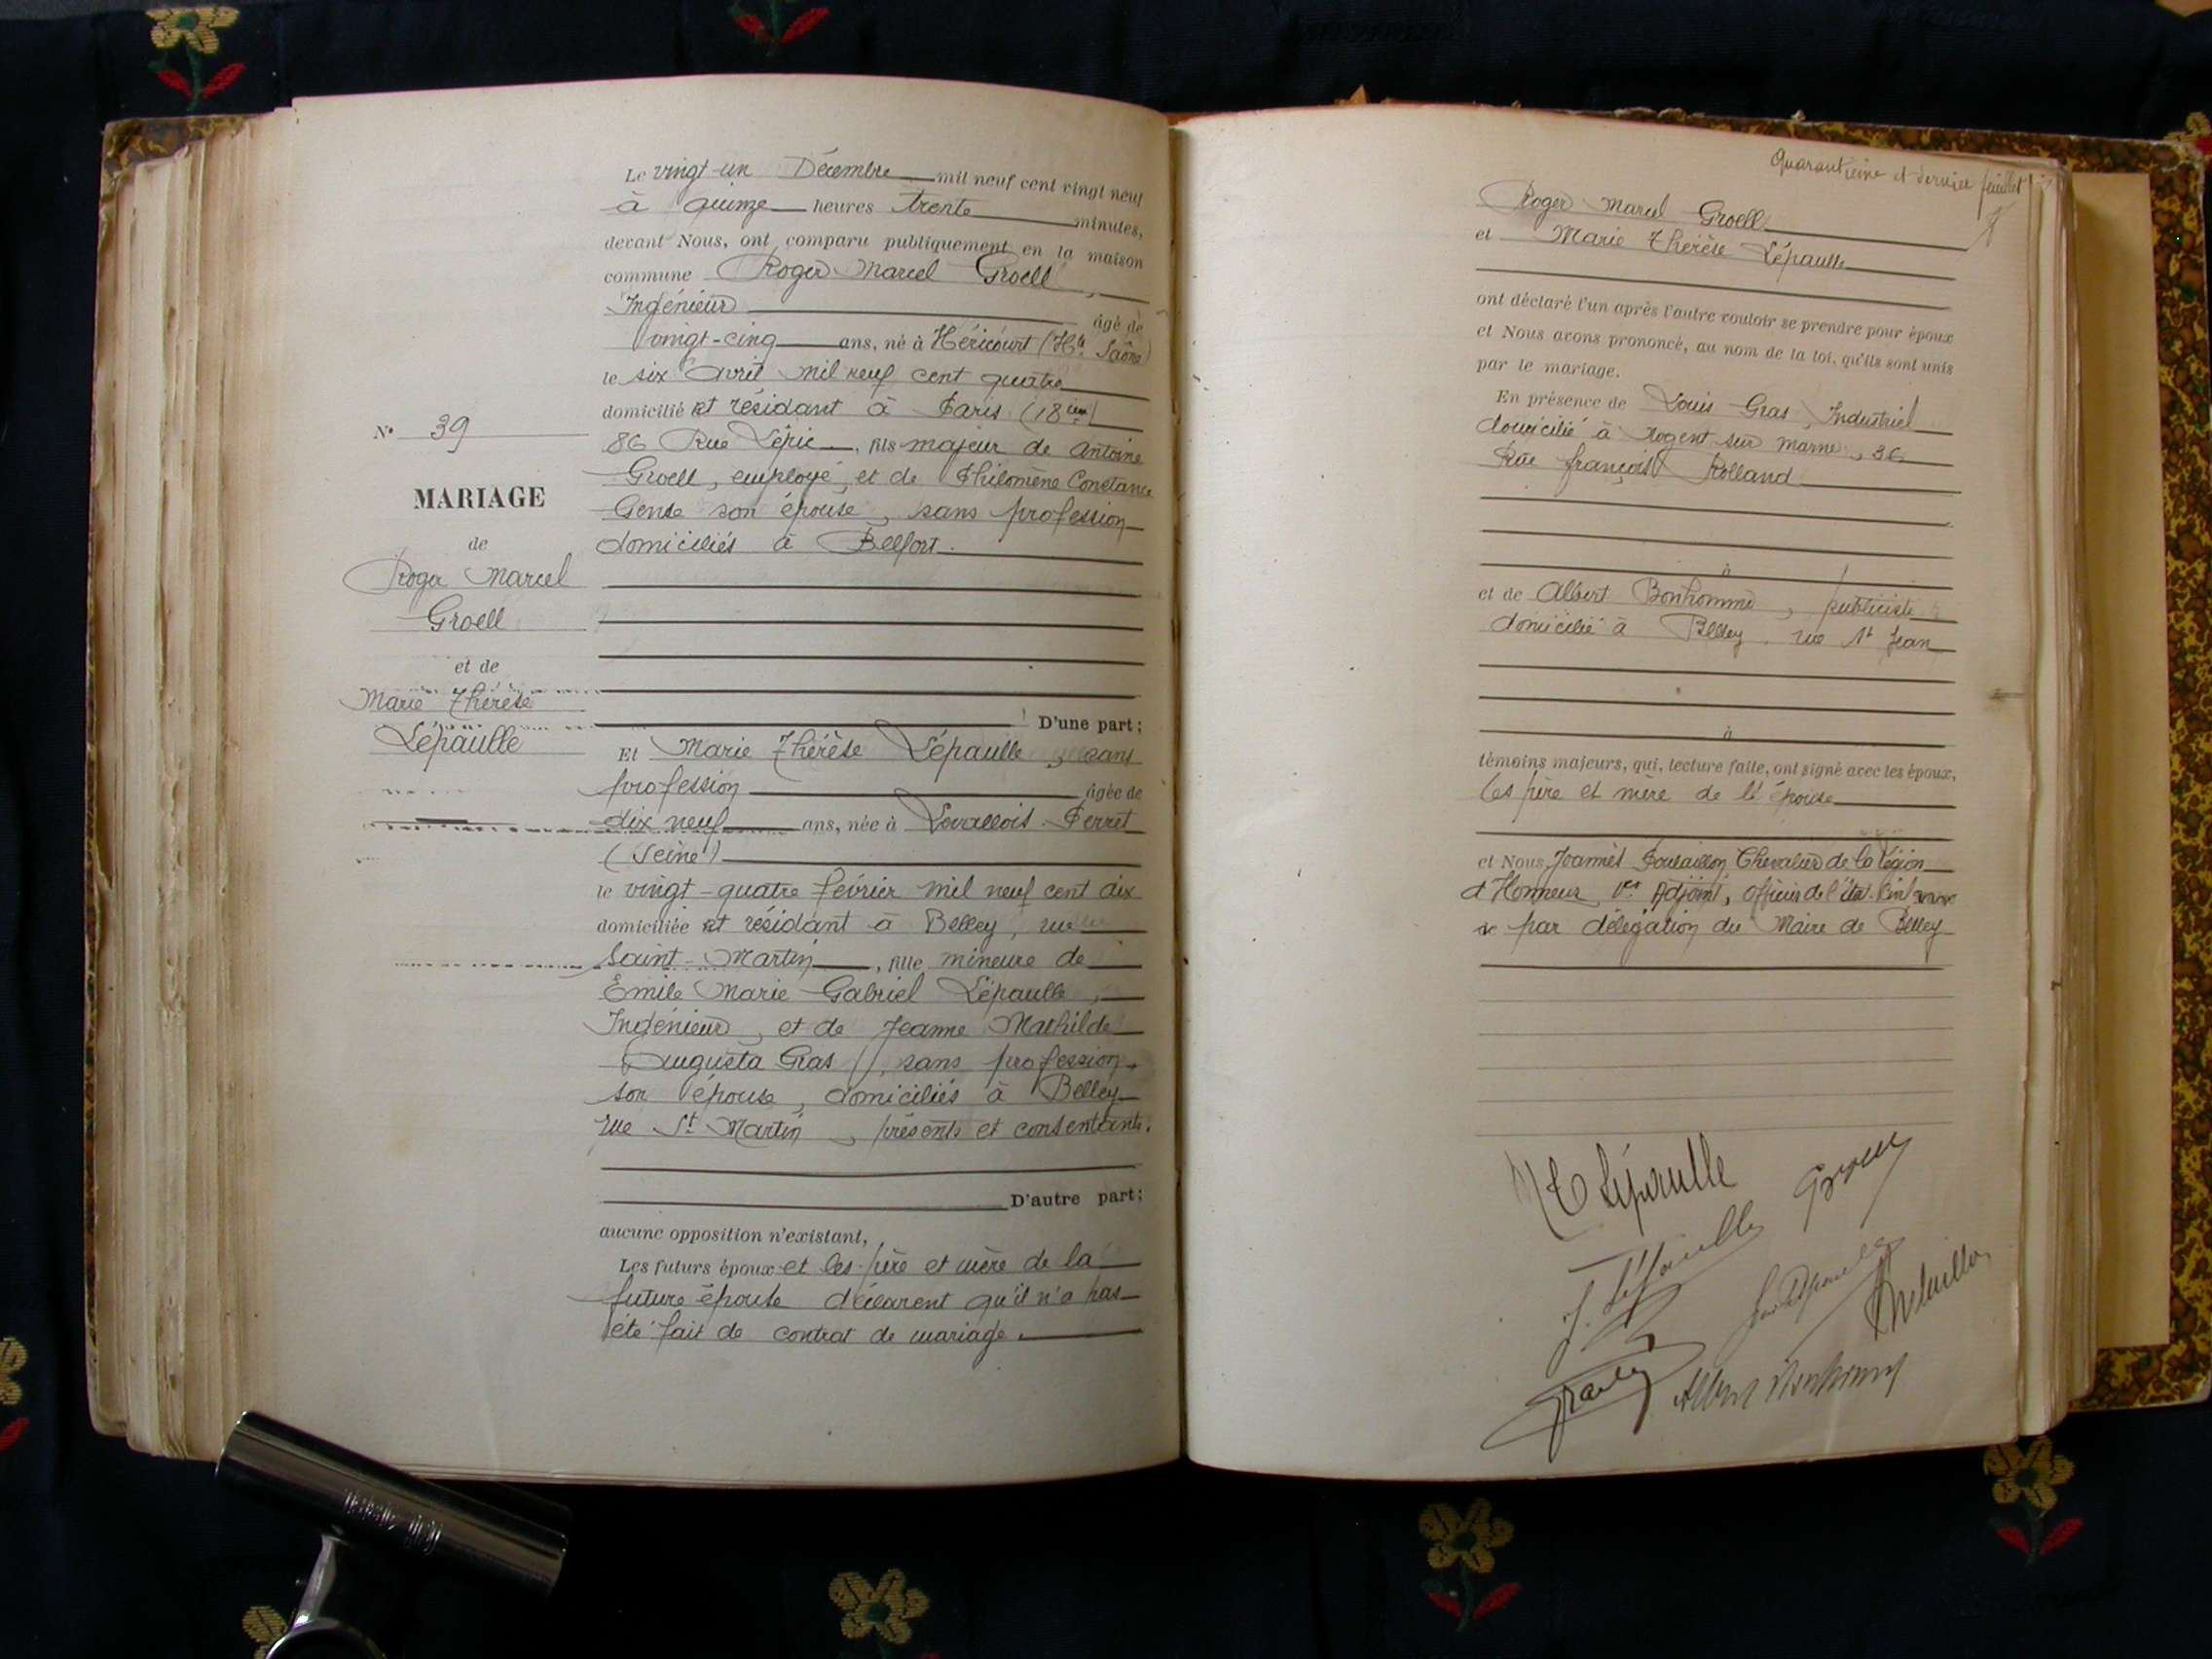 N° 39
MARIAGE
de
Roger Marcel
Groell
et de
Marie Thérèse
Lépaulle
Le vingt-un Décembre mil neuf cent vingt neuf
à quinze heures trente minutes,
devant Nous, ont comparu publiquement en la maison
commune Roger Marcel Groell,
Ingénieur âgé de
vingt-cinq ans, né à Héricourt (Hte Saône)
le six avril mil neuf cent quatre
domicilié et résidant à Paris (18ième)
86 Rue Lepic, fils majeur de Antoine
Groell, employé, et de Philomène Constance
son épouse, sans profession
domiciliés à Belfort.
D'une part;
Et Marie Thérèse Lépaulle, sans
profession âgée de
dix neuf ans, née à Levallois-Perret
(Seine)
le vingt-quatre février mil neuf cent dix
domiciliée et résidant à Belley, rue
Saint-Martin, fille mineure de
Emile Marie Gabriel Lépaulle,
Ingénieur, et de Jeanne Mathilde
Augusta Gras, sans profession,
son épouse, domiciliés à Belley
rue St Martin, présents et consentants.
D'autre part;
aucune opposition n'existant,
Les futurs époux et les père et mère de la
future épouse déclarent qu'il n'a pas
été fait de contrat de mariage.
Quarantième et dernier feuillet
Roger Marcel Groell
et Marie Thérèse Lépaulle
ont déclaré l'un après l'autre vouloir se prendre pour époux
et Nous avons prononcé, au nom de la loi, qu'ils sont unis
par le mariage.
En présence de Louis Gras, Industriel
domicilié à Nogent sur Marne, 36
Rue François Rolland
à
et de Albert Bonhomme, publiciste
domicilié à Belley, rue St Jean
à
témoins majeurs, qui, lecture faite, ont signé avec les époux,
les père et mère de l'épouse
et Nous, Joannès Chevalier de la Légion
d'Honneur, 1er Adjoint, officier de l'état-Civil
par délégation du Maire de Belley
MT Lépaulle Groell
J. Lépaulle
Albert Bonhomme